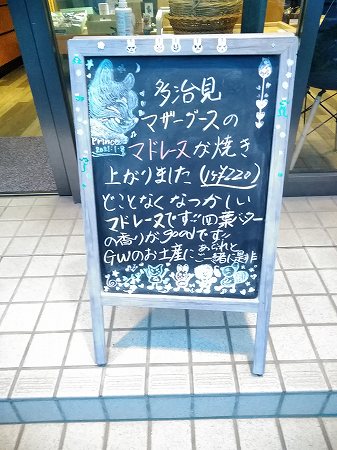 Prince
2021.1.8
多治見
マザーグースの
マドレーヌが焼き
上がりました(1ヶ¥220)
どことなくなつかしい
マドレーヌです♪四葉バター
の香りがgoodです♪
GWのお土産にあられと
ご一緒に是非